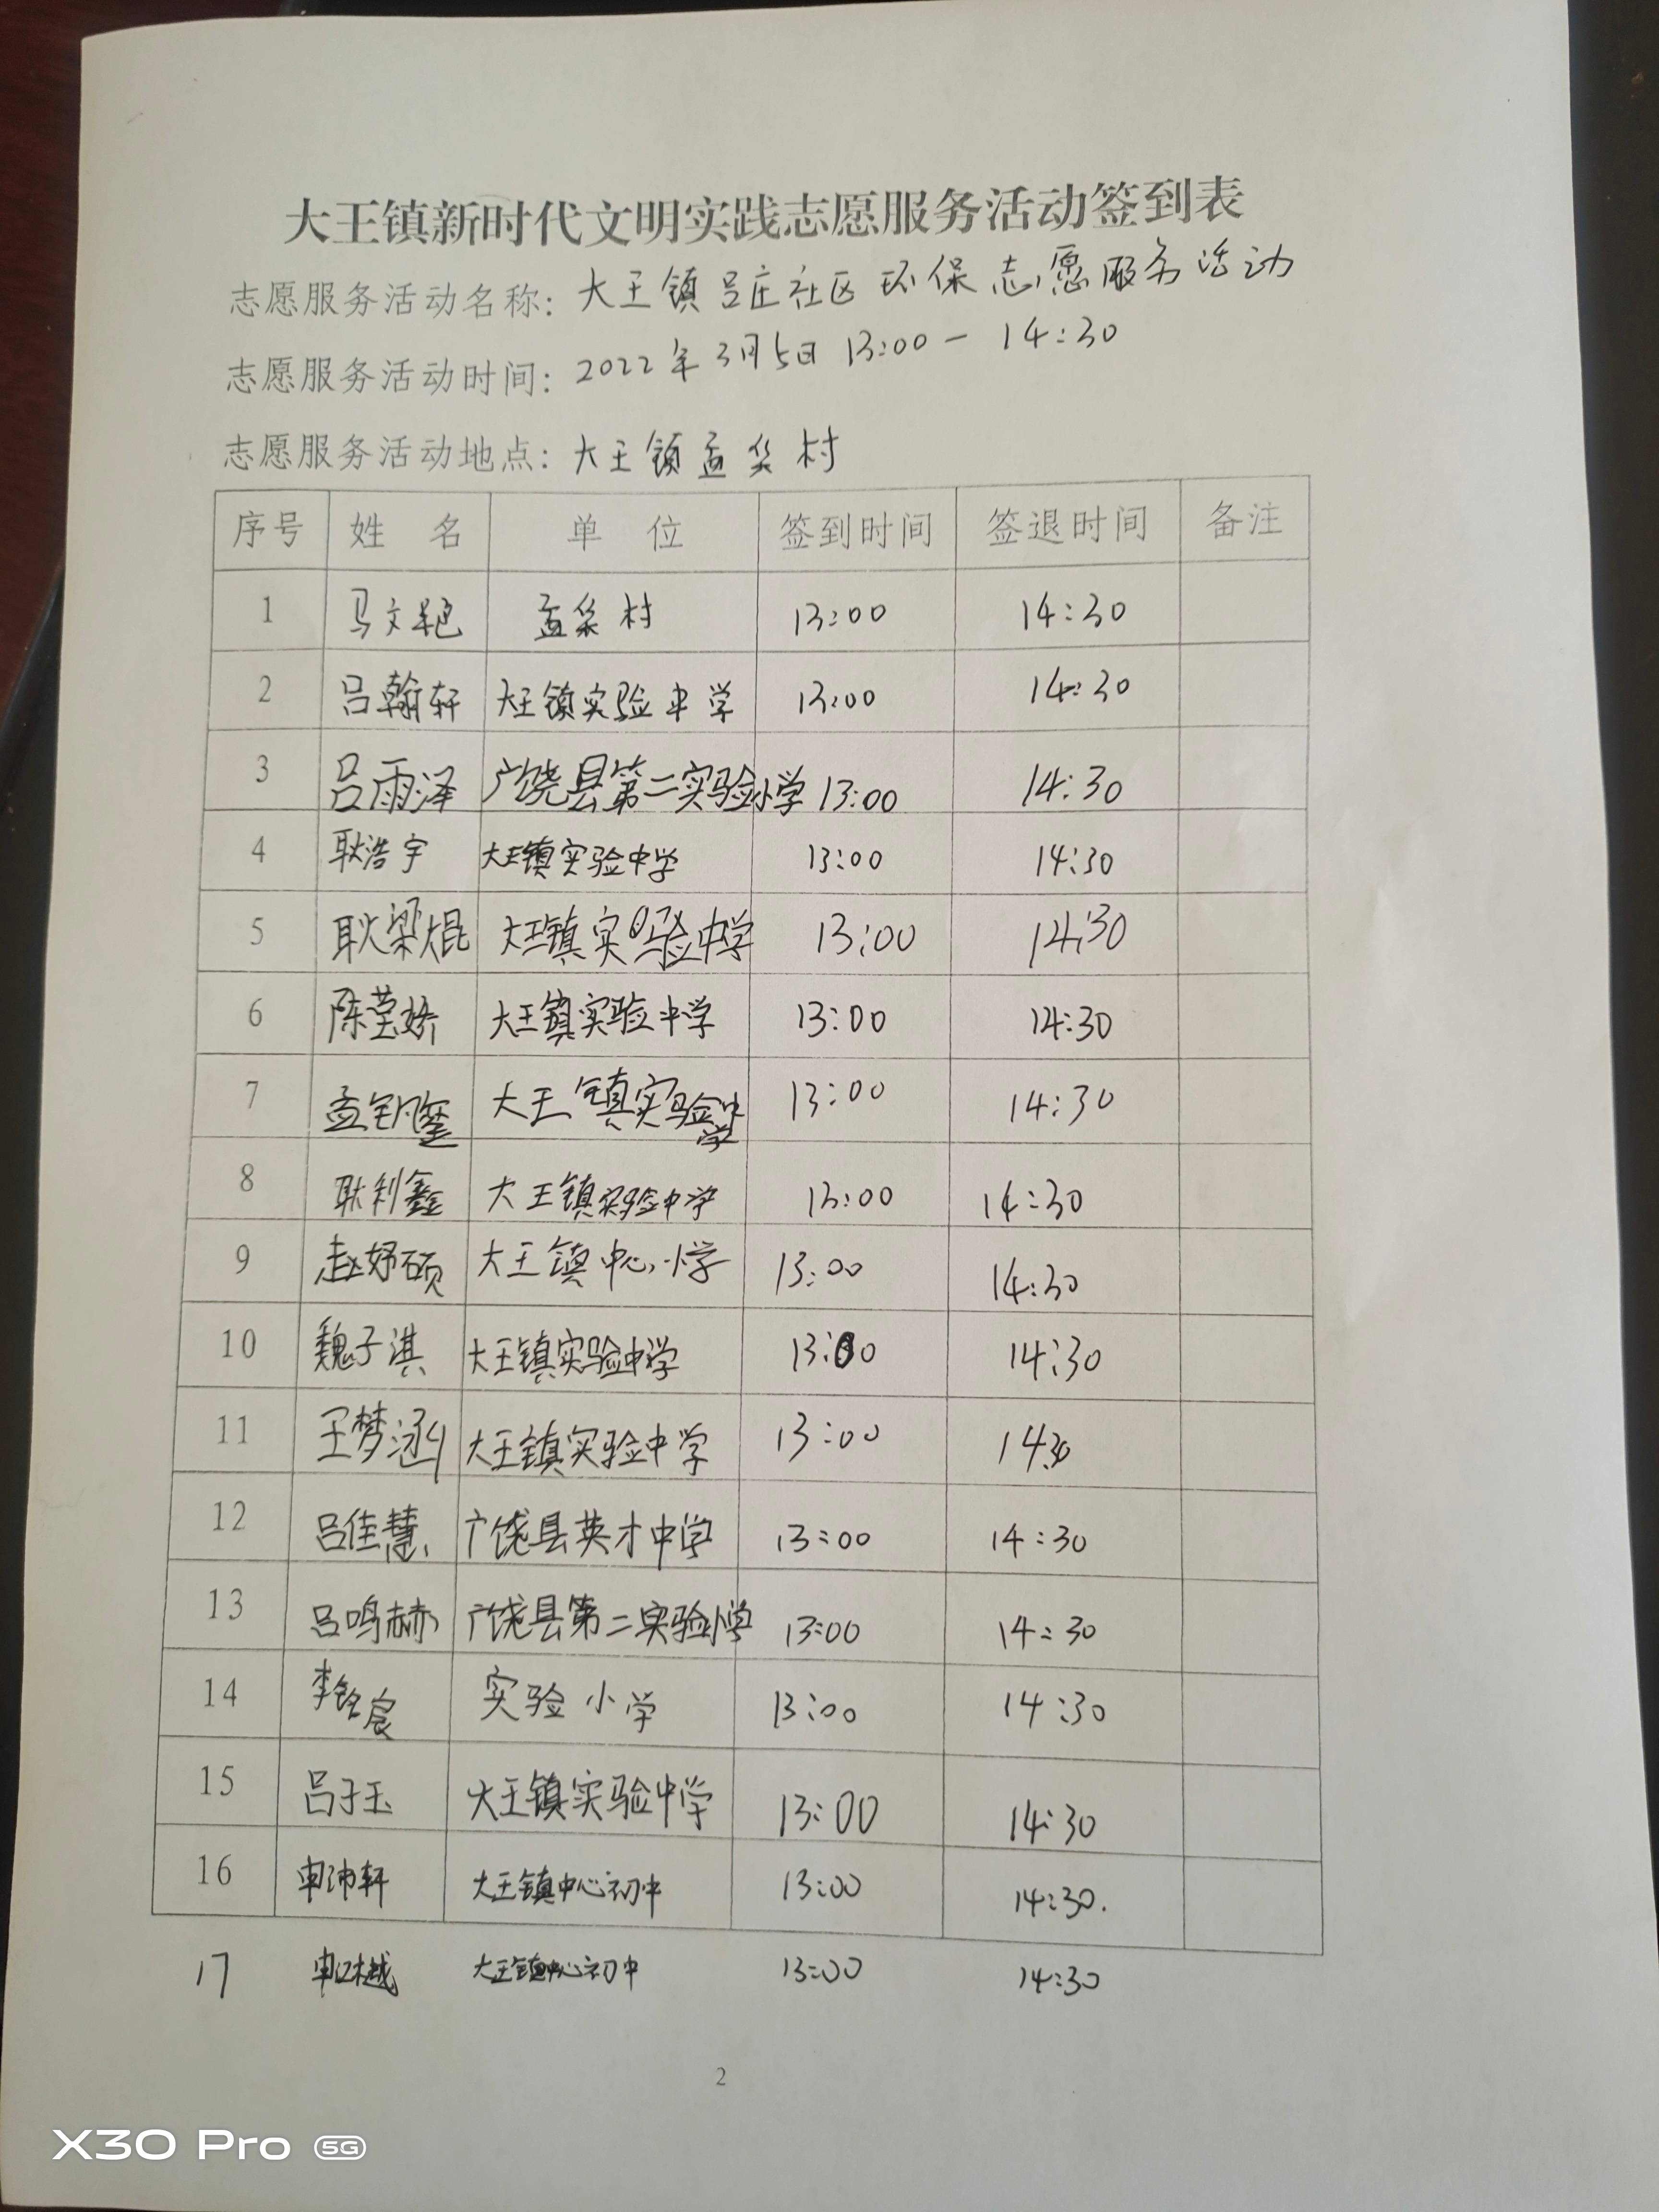 大王镇新时代文明实践志愿服务活动签到表
志愿服务活动名称：大王镇吕庄社区环保志愿服务活动
志愿服务活动时间：2022年3月5日 13:00 — 14:30
志愿服务活动地点：大王镇孟集村
序号 姓 名 单 位 签到时间 签退时间 备注
1 马文艳 孟集村 13:00 14:30
2 吕翰轩 大王镇实验中学 13:00 14:30
3 吕雨泽 广饶县第二实验小学 13:00 14:30
4 耿浩宇 大王镇实验中学 13:00 14:30
5 耿梁焜 大王镇实验中学 13:00 14:30
6 陈莹娇 大王镇实验中学 13:00 14:30
7 孟钥 大王镇实验中学 13:00 14:30
8 耿利鑫 大王镇实验中学 13:00 14:30
9 赵妤硕 大王镇中心小学 13:00 14:30
10 魏子淇 大王镇实验中学 13:00 14:30
11 王梦涵 大王镇实验中学 13:00 14:30
12 吕佳慧 广饶县英才中学 13:00 14:30
13 吕鸣赫 广饶县第二实验小学 13:00 14:30
14 李铭宸 实验小学 13:00 14:30
15 吕子玉 大王镇实验中学 13:00 14:30
16 申沛轩 大王镇中心初中 13:00 14:30.
17 申 大王镇中心初中 13:00 14:30
2
X30 Pro 5G